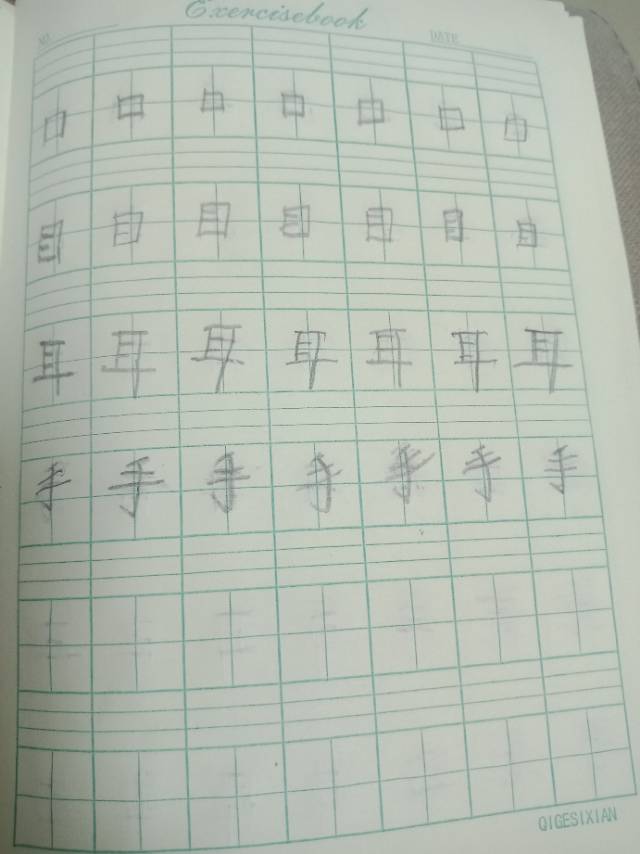 Exercisebook
NO. DATE
口 口 口 口 口 口 口
目 目 目 目 目 目 目
耳 耳 耳 耳 耳 耳 耳
手 手 手 手 手 手 手
QIGESIXIAN